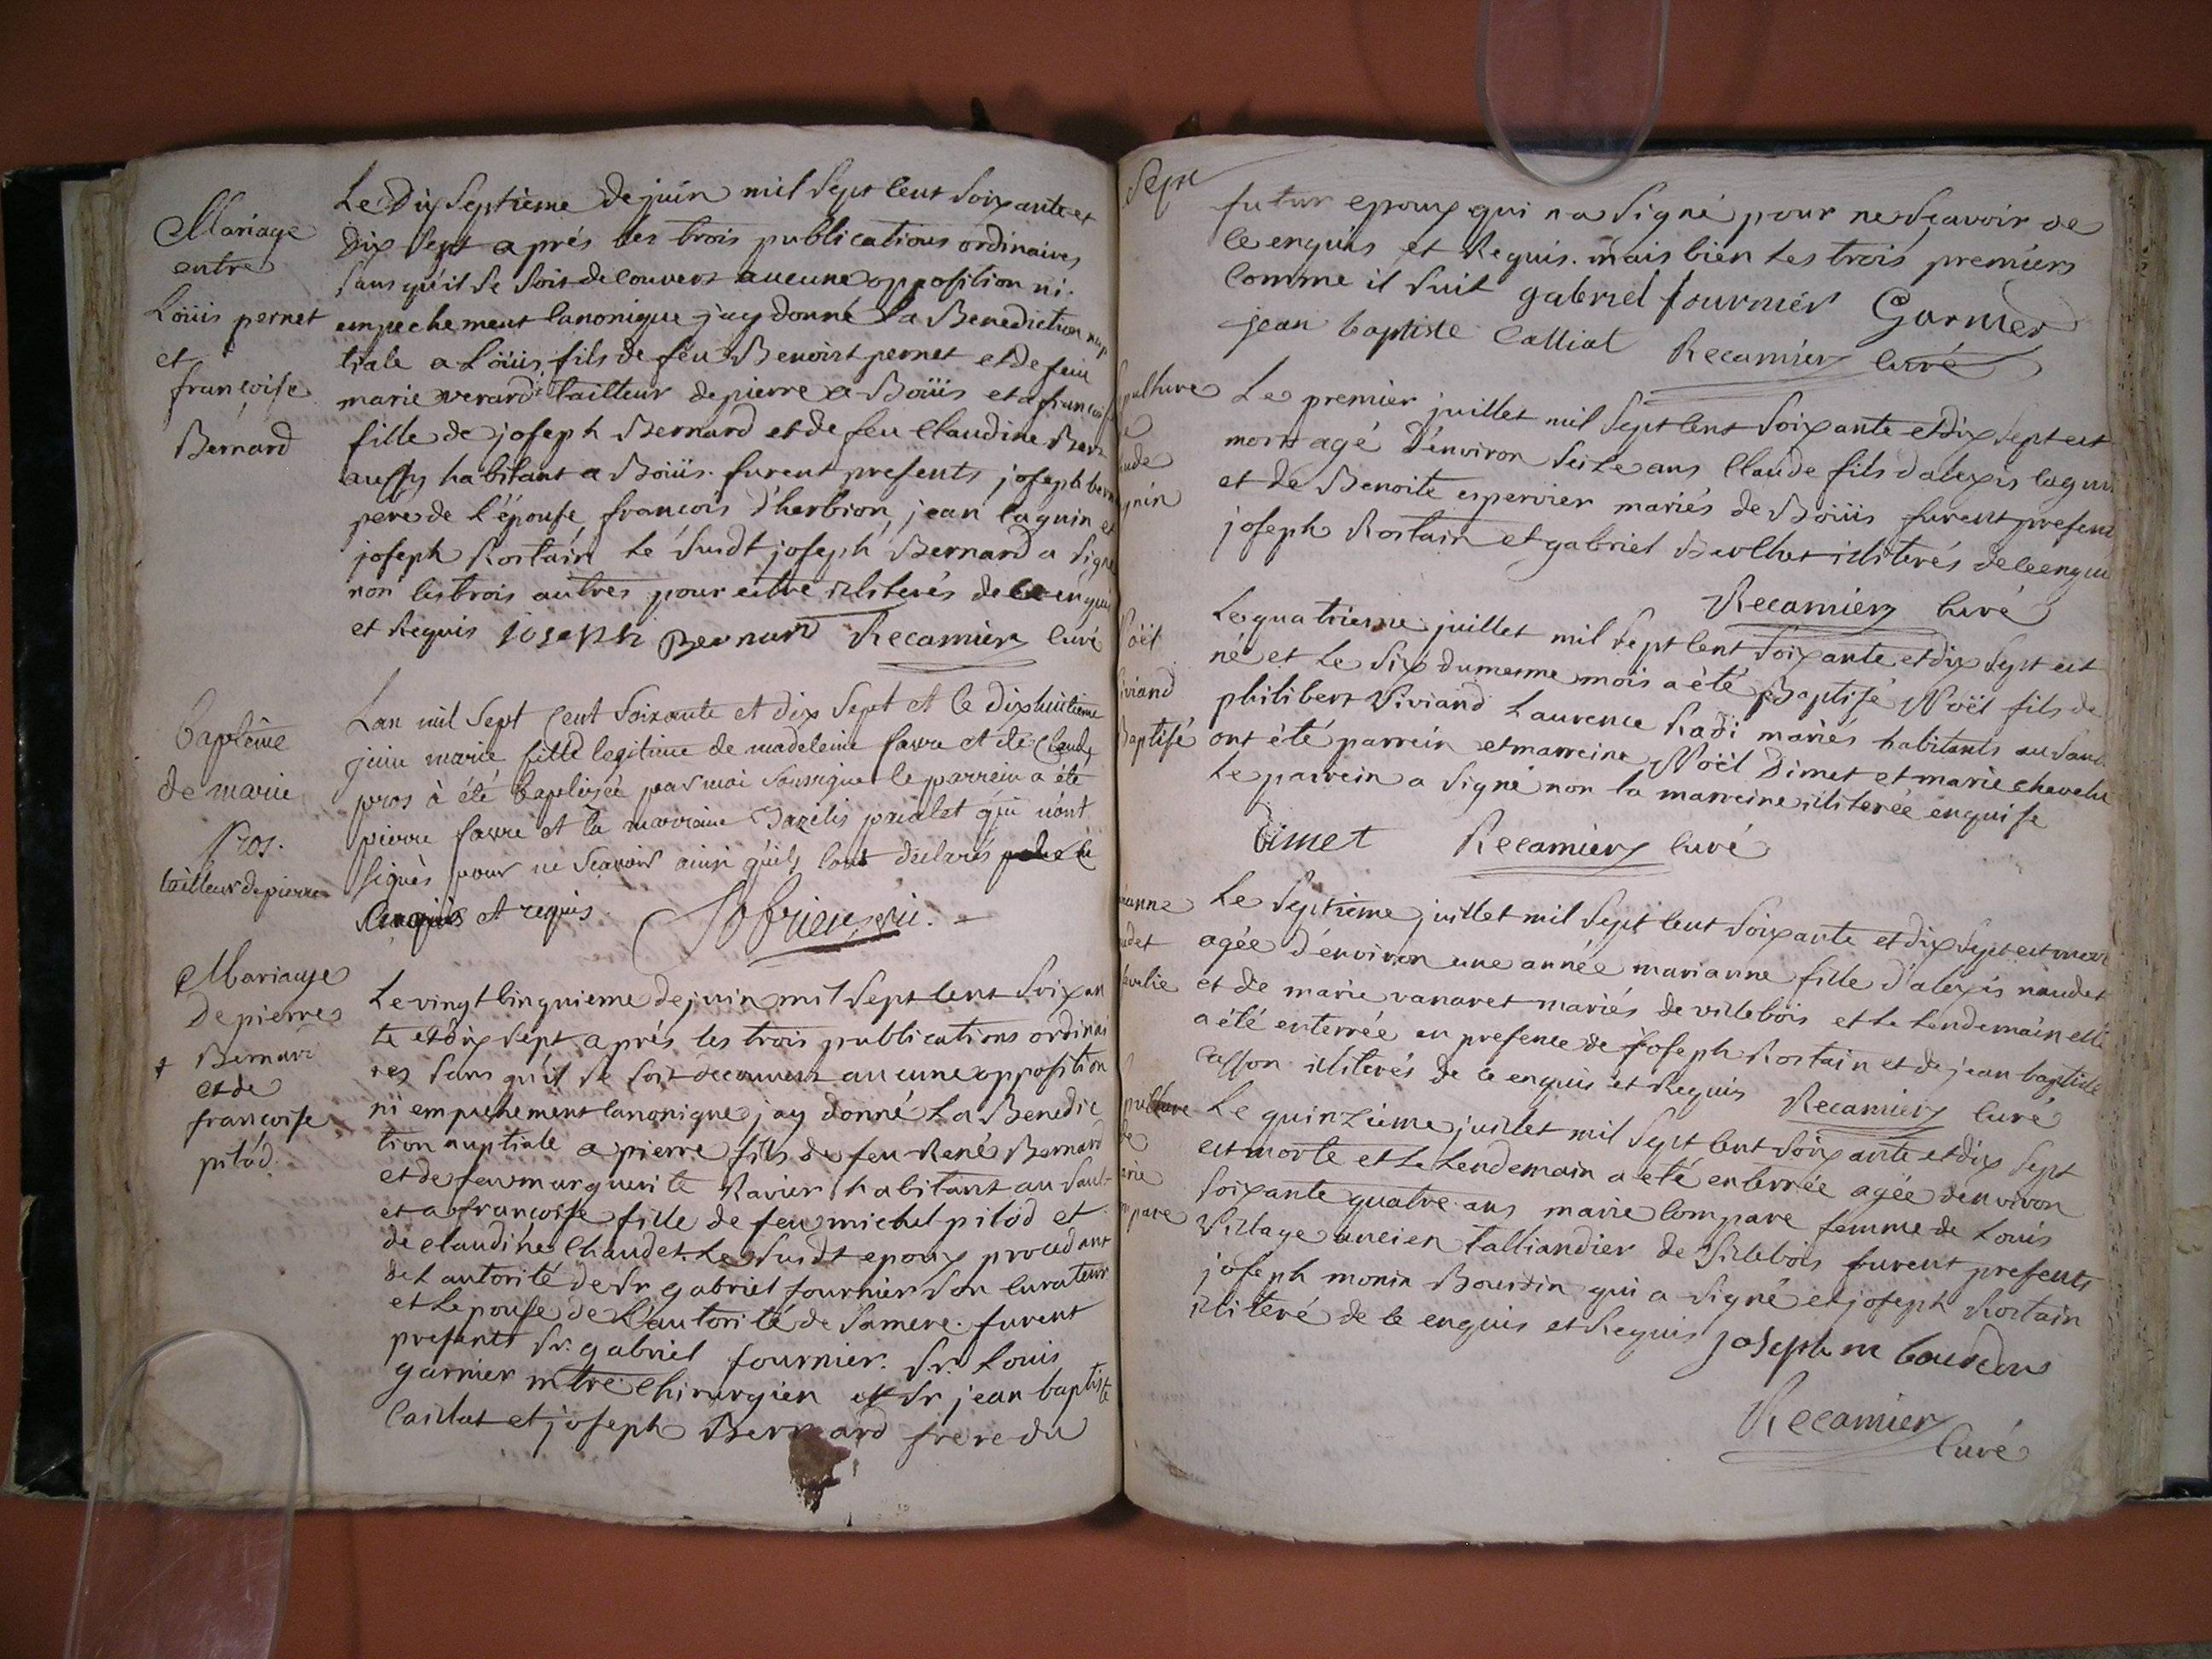 Mariage
entre
Loüis pernet
et
francoise
Bernard
Le Dix Septieme de juin mil Sept Cent Soixante et
Dix Sept après les trois publications ordinaires
Sans qu'il Se Soit decouvert aucune opposition ni
empechement Canonique j'ay donné La Benediction nup
tiale a Loüis fils de feu Benoist pernet et de feue
marie verard tailleur de pierre a Boüis et a francoise
fille de joseph Bernard et de feu Claudine
aussy habitant a Boüis. furent presents joseph
pere de l'épouse, francois d'herbion, jean laguin et
joseph Rostain Le Susdt joseph Bernard a Signé
non les trois autres pour estre illiterés de ce enquis
et Requis joseph Bernard Recamier Curé
baptême
de marie
pros.
tailleur de pierre
Lan mil Sept Cent Soixante et dix Sept et le dixhuitieme
juin marie fille legitime de madeleine favre et de Claude
pros à été baptisée par moi Soussigné le parrein a été
pierre favre et la marraine prialet qui n'ont
signés pour ne Scavoir ainsi qu'ils l'ont déclarés
enquis et requis.
Mariage
De pierre
Bernard
et de
francoise
pilod.
Le vingt Cinquieme de juin mil Sept Cent Soixan
te et dix Sept après les trois publications ordinai
res Sans qu'il Se Soit decouvert aucune opposition
ni empechement Canonique j'ay donné La Benedic
tion nuptiale a pierre fils de feu René Bernard
et de feu marguerite Ravier habitant au Sault
et a francoise fille de feu michel pilod et
de claudine Chaudet. Le Susdt epoux procedant
de L'autorité de Sr. gabriel fournier Son Curateur
et Lepouse de L'autorité de Sa mere. furent
presents Sr. gabriel fournier. Sr. Louis
garnier mtre. Chirurgien et Sr. jean baptiste
Caillat et joseph Bernard frere du
futur epoux qui n'a Signé pour ne Scavoir de
Ce enquis et Requis. mais bien Les trois premiers
Comme il Suit gabriel fournier Garnier
jean baptiste Calliat Recamier Curé
Le premier juillet mil Sept Cent Soixante et dix Sept est
mort agé d'environ Seize ans Claude fils d'alexis laguin
et de Benoite espervier mariés de Boüis furent presents
joseph Rostain et gabriel illiterés de ce enquis
Recamier Curé
Noël
Viviand
Baptisé
Le quatrieme juillet mil Sept Cent Soixante et dix Sept est
né et Le Six du mesme mois a été Baptisé Noël fils de
philibert Viviand Laurence Radi mariés habitants au Sault
ont été parrein et marreine Noël Dimet et marie
Le parrein a Signé non la marreine illiterée enquise
dimet Recamier Curé
Le Septieme juillet mil Sept Cent Soixante et dix Sept est morte
agée d'environ une année marianne fille d'alexis naudet
et de marie vanaret mariés de villebois et Le Lendemain elle
a été enterrée en presence de joseph Rostain et de jean baptiste
Casson illiterés de ce enquis et Requis Recamier Curé
Le quinzieme juillet mil Sept Cent Soixante et dix Sept
est morte et Le Lendemain a été enterrée agée d'environ
Soixante quatre ans marie Compare femme de Louis
Village ancien talliandier de Villebois furent presents
joseph monin Bourdin qui a Signé et joseph Rostain
illiteré de ce enquis et Requis joseph m bourdin
Recamier
Curé